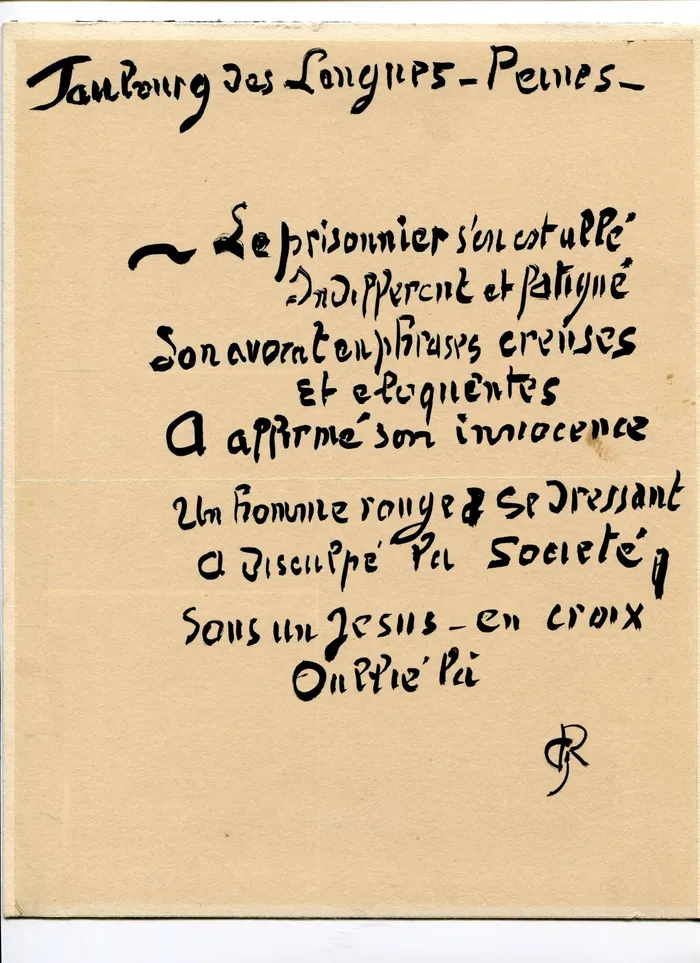 Faubourg des Longues - Peines -
~ Le prisonnier s'en est allé
Indifferent et fatigué
Son avocat en phrases creuses
Et eloquentes
A affirmé son innocence
Un homme rouge se dressant
A disculpé la societé,
Sous un Jesus - en croix
Oublié là
GR